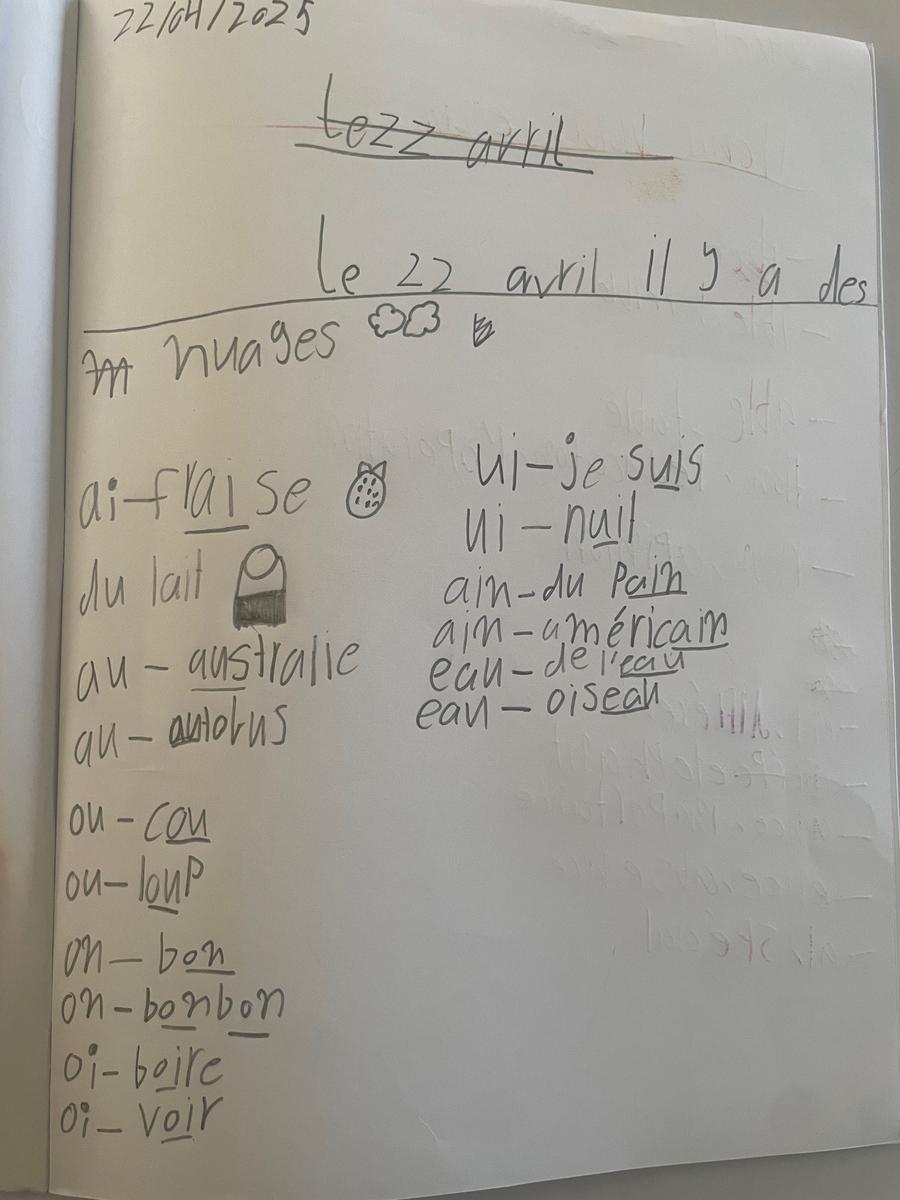 22/04/2025
le22 avril
le 22 avril il y a des
nuages
ai-fraise
du lait
au - australie
au - autobus
ou - cou
ou- loup
on - bon
on - bonbon
oi - boire
oi - voir
ui - je suis
ui - nuit
ain - du pain
ain - américain
eau - de l'eau
eau - oiseau